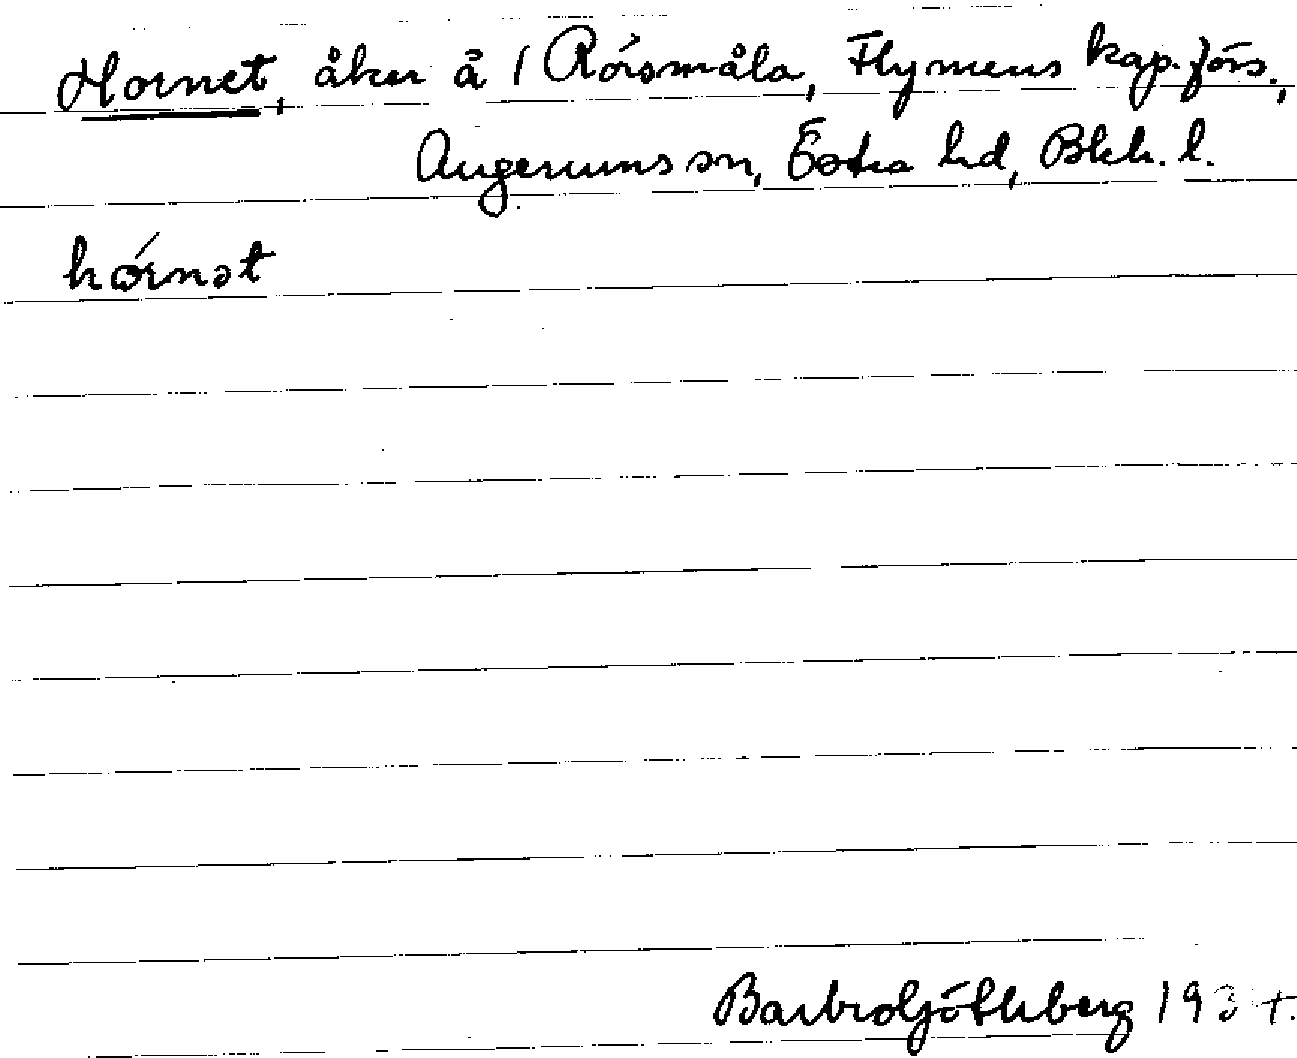 Hornet, åker å 1 Rörsmåla, Flymens kap.förs.,
Augerums sn, Östra hd, Blek. l.
hǿrnət
Barbro Göthberg 1934.